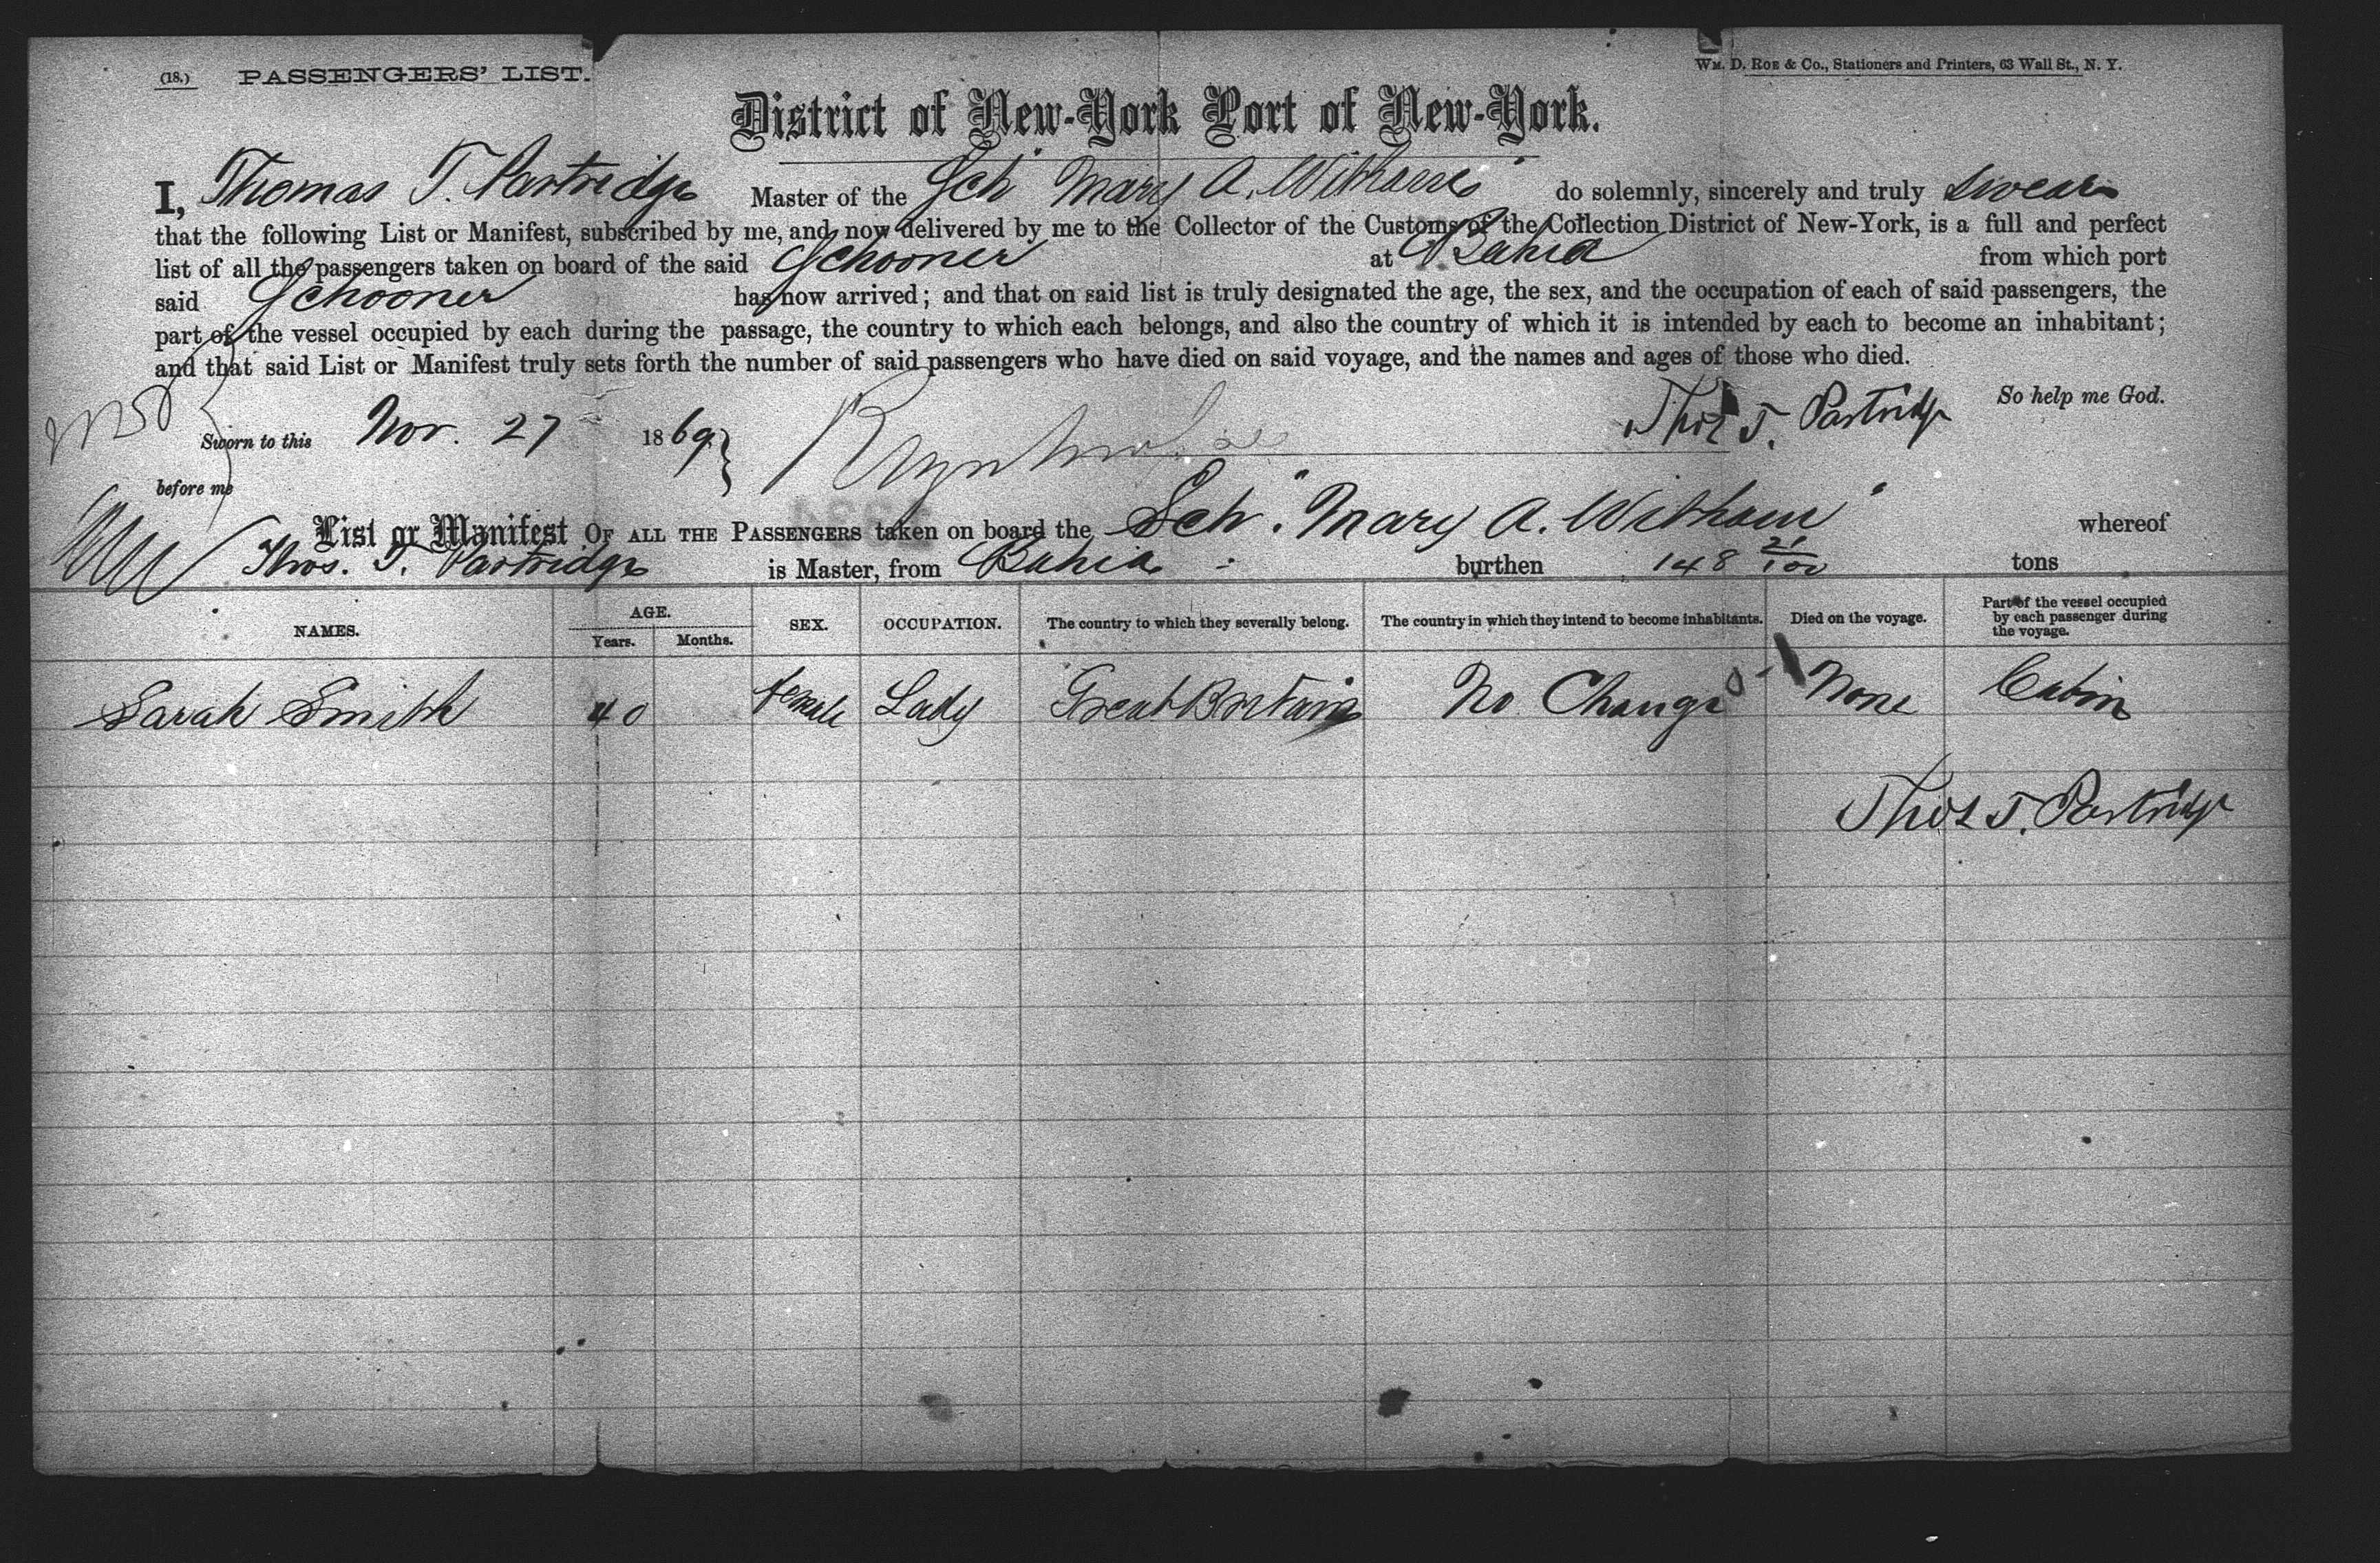 (18.) PASSENGERS' LIST.
WM. D. ROE & Co., Stationers and Printers, 63 Wall St., N. Y.
District of New-York Port of New-York.
I, Thomas T. Partridge Master of the Sch "Mary A. Witham" do solemnly, sincerely and truly swear
that the following List or Manifest, subscribed by me, and now delivered by me to the Collector of the Customs of the Collection District of New-York, is a full and perfect
list of all the passengers taken on board of the said Schooner at Bahia from which port
said Schooner has now arrived; and that on said list is truly designated the age, the sex, and the occupation of each of said passengers, the
part of the vessel occupied by each during the passage, the country to which each belongs, and also the country of which it is intended by each to become an inhabitant;
and that said List or Manifest truly sets forth the number of said passengers who have died on said voyage, and the names and ages of those who died.
So help me God.
Sworn to this Nov. 27 1869 Thos T. Partridge
before me
List or Manifest OF ALL THE PASSENGERS taken on board the Sch "Mary A. Witham" whereof
Thos. T. Partridge is Master, from Bahia burthen 148 21/100 tons
NAMES. AGE. Years. Months. SEX. OCCUPATION. The country to which they severally belong. The country in which they intend to become inhabitants. Died on the voyage. Part of the vessel occupied by each passenger during the voyage.
Sarah Smith 40 female Lady Great Britain No Change None Cabin
Thos T. Partridge